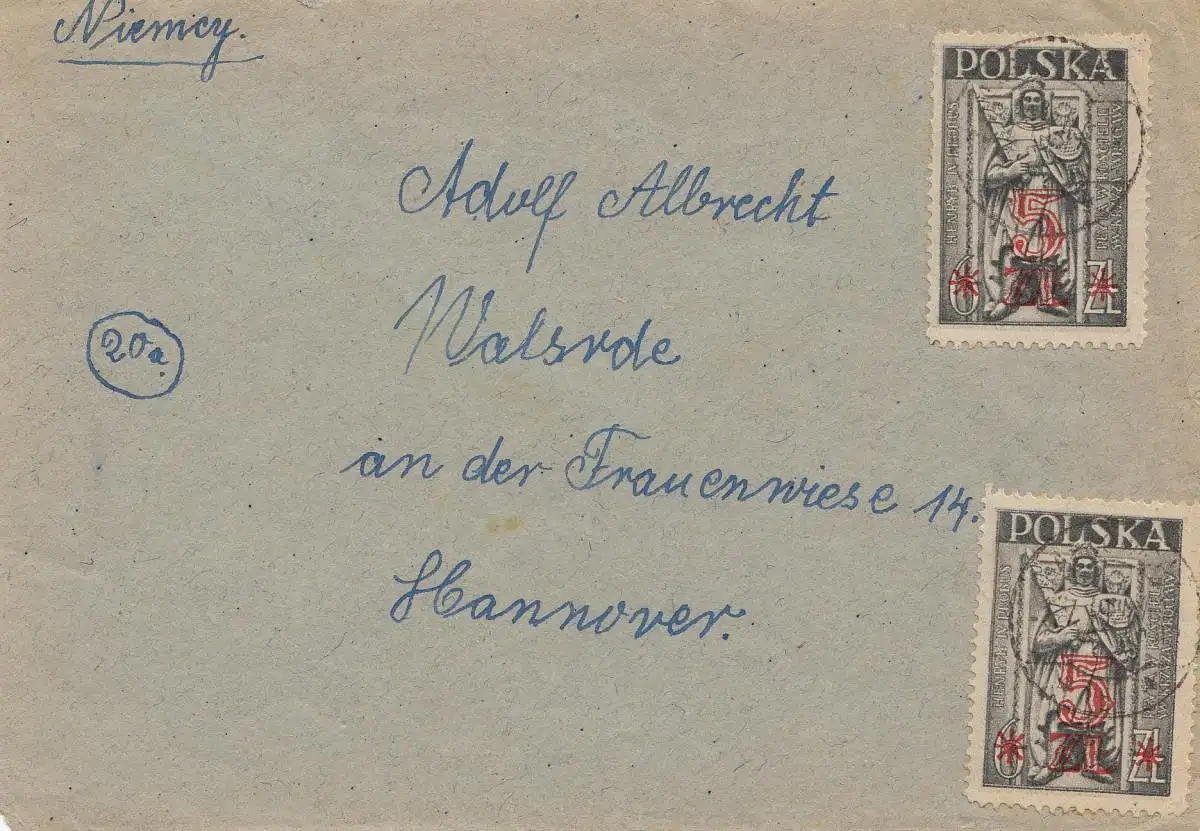 Niemcy.
POLSKA
HENRYK IV PROBUS
5
6 ZŁ ZŁ
Adolf Albrecht
Walsrde
20a
an der Frauenwiese 14.
Hannover.
POLSKA
HENRYK IV PROBUS
5
6 ZŁ ZŁ